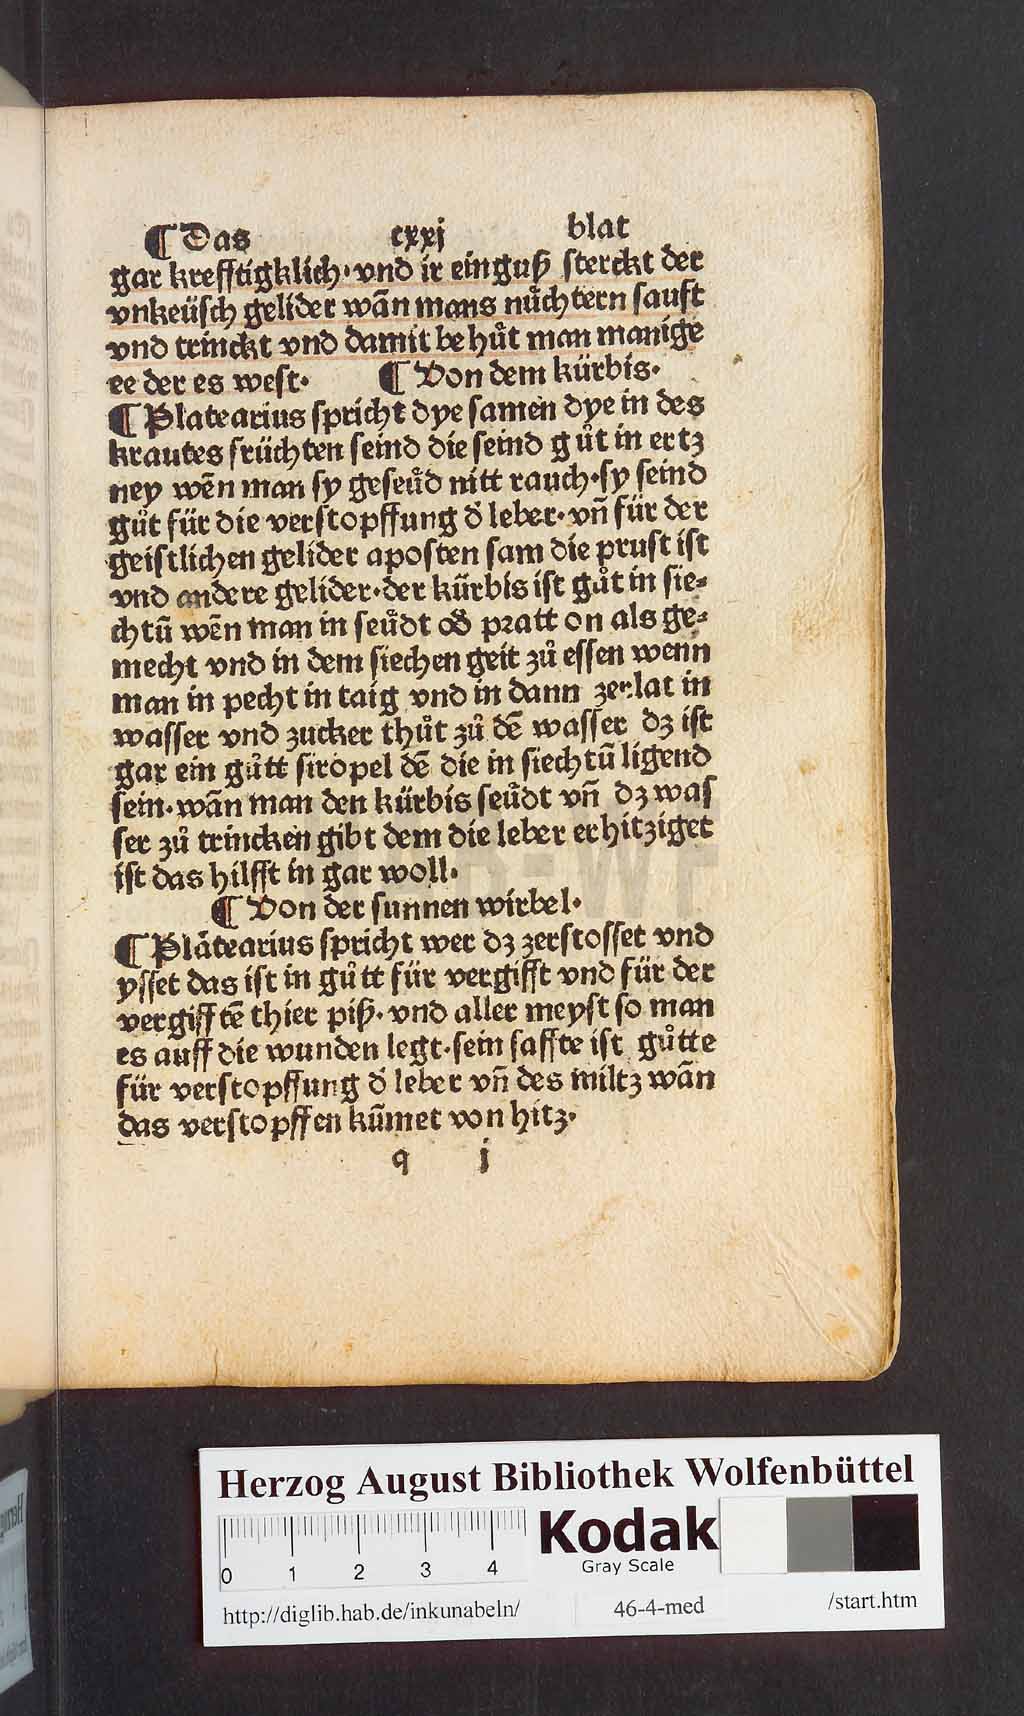 ¶ Das cxxj blat
gar krefftigklich· vnd ir einguß sterckt der
vnkeüsch gelider wān mans nůchtern sauft
vnd trinckt vnd damit be hůt man manige
ee der es west· ¶ Von dem kürbis·
¶ Platearius spricht dye samen dye in des
krautes früchten seind die seind gůt in ertz
ney wēn man sy geseůd nitt rauch· sy seind
gůt für die verstopffung ð leber· vn̄ für der
geistlichen gelider aposten sam die prust ist
vnd andere gelider· der kürbis ist gůt in sie⸗
chtū wēn man in seůdt oð pratt on als ge⸗
mecht vnd in dem siechen geit zů essen wenn
man in pecht in taig vnd in dann zerlat in
wasser vnd zucker thůt zů dē wasser dz ist
gar ein gůtt siropel dē die in siechtū ligend
sein· wān man den kürbis seůdt vn̄ dz was
ser zů trincken gibt dem die leber erhitziget
ist das hilfft in gar woll·
¶ Von der sunnen wirbel·
¶ Platearius spricht wer dz zerstosset vnd
ysset das ist in gůtt für vergifft vnd für der
vergifftē thier piß· vnd aller meyst so man
es auff die wunden legt· sein saffte ist gůtte
für verstopffung ð leber vn̄ des miltz wān
das verstopffen kūmet von hitz·
q j
Herzog August Bibliothek Wolfenbüttel
0 1 2 3 4
Kodak
Gray Scale
http://diglib.hab.de/inkunabeln/ 46-4-med /start.htm